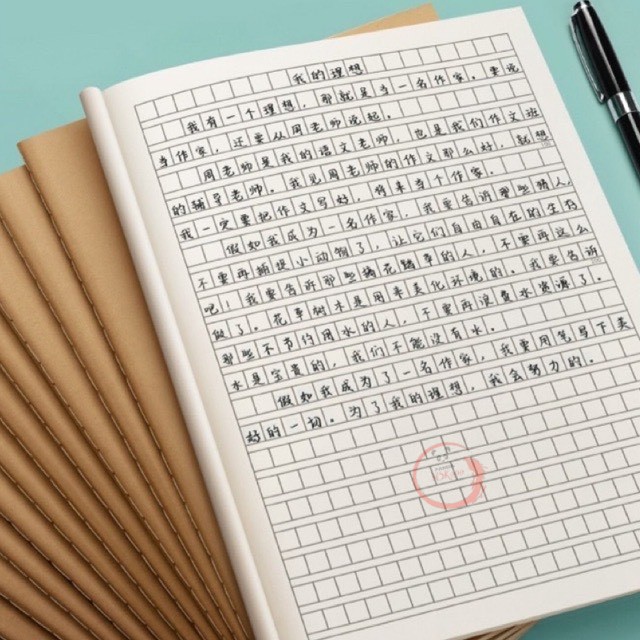 我的理想
我有一个理想，那就是当一名作家。要说
当作家，还要从周老师说起。
周老师是我的语文老师，也是我们作文班
的辅导老师。我见周老师的作文那么好，就想
我一定要把作文写好，将来当个作家。
假如我成为一名作家，我要告诉那些猎人
不要再捕捉小动物了，让它们自由自在的生存
吧！我要告诉那些摘花踏草的人，不要再这么
做了。花草树木是用来美化环境的。我要告诉
那些不节约用水的人，不要再浪费水资源了。
水是宝贵的，我们不能没有水。
假如我成为了一名作家，我要用笔写下美
好的一切。为了我的理想，我会努力的。